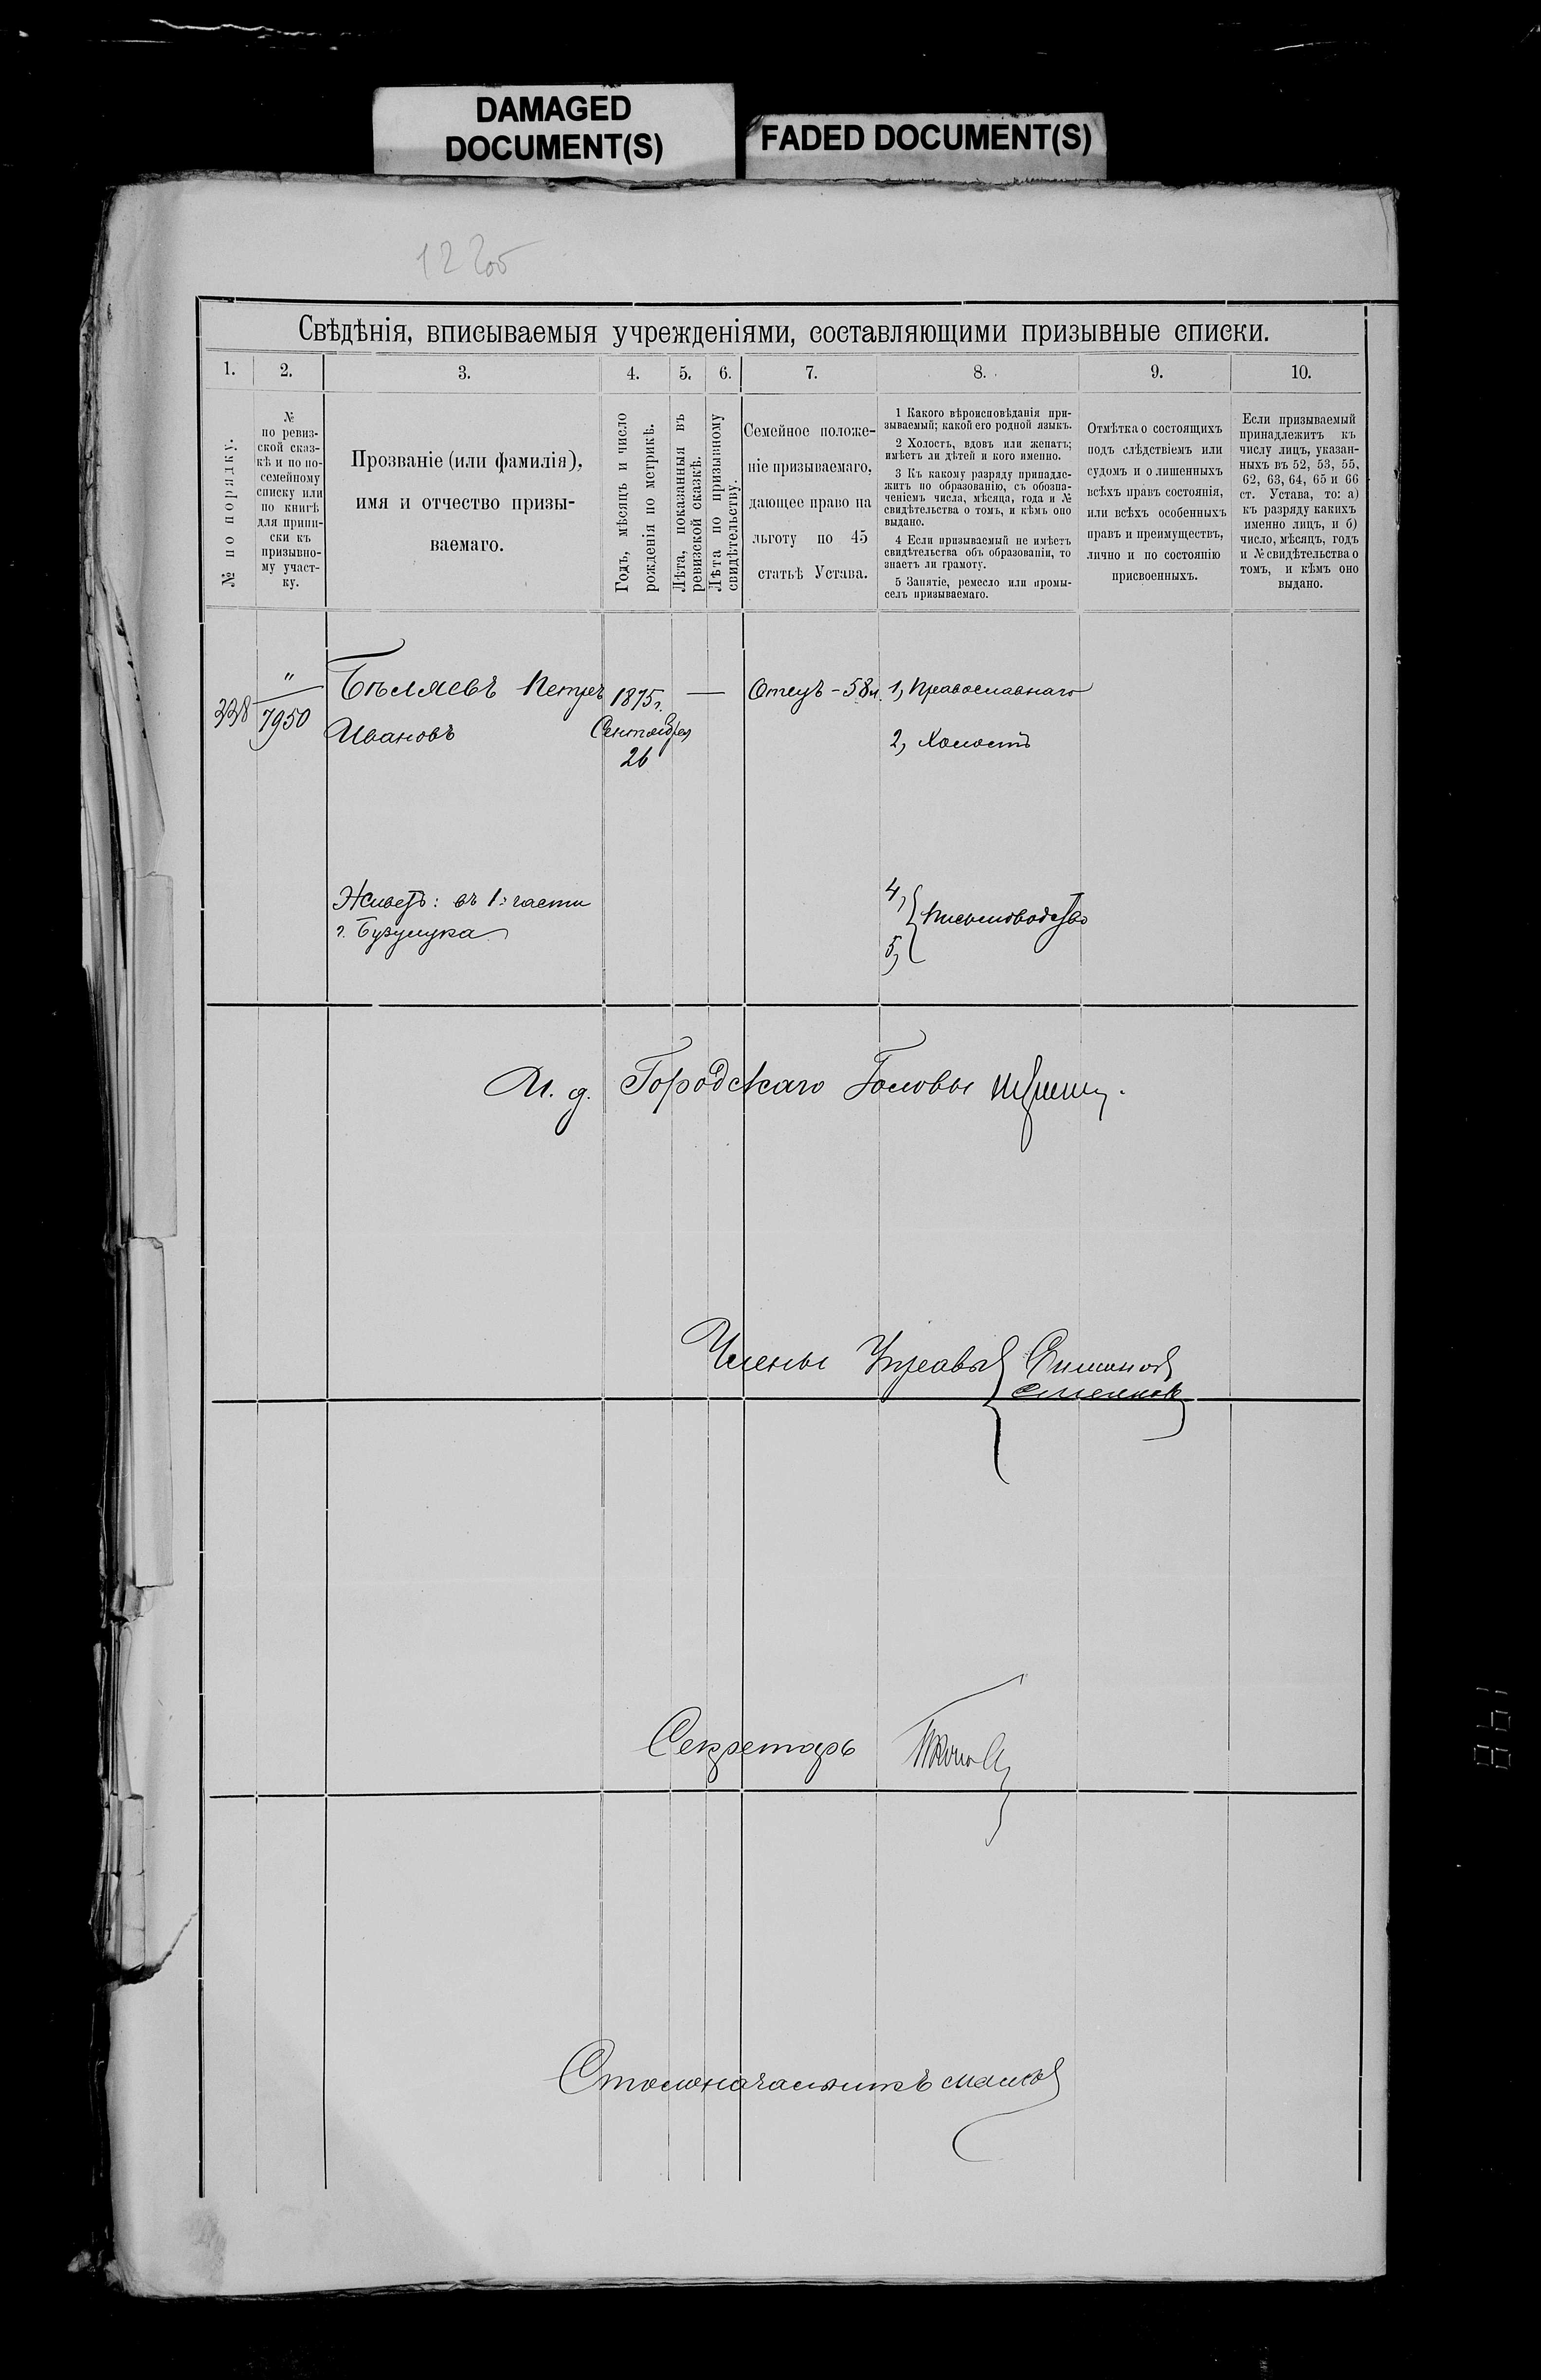 DAMAGED
DOCUMENT(S)
FADED DOCUMENT(S)
Свѣдѣнія, вписываемыя учрежденіями, составляющими призывные списки.
1.
2.
3.
4.
5.
6.
7.
8.
9.
10.
№ по порядку.
№
по ревиз-
ской сказ-
кѣ и по по-
семейному
списку или
по книгѣ
для припи-
ски къ
призывно-
му участ-
ку.
Прозваніе (или фамилія),
имя и отчество призы-
ваемаго.
Годъ, мѣсяцъ и число
рожденія по метрикѣ.
Лѣта, показанныя въ
ревизской сказкѣ.
Лѣта по призывному
свидѣтельству.
Семейное положе-
ніе призываемаго,
дающее право на
льготу по 45
статьѣ Устава.
1 Какого вѣроисповѣданія при-
зываемый; какой его родной языкъ.
2 Холостъ, вдовъ или женатъ;
имѣетъ ли дѣтей и кого именно.
3 Къ какому разряду принадле-
житъ по образованію, съ обозна-
ченіемъ числа, мѣсяца, года и №
свидѣтельства о томъ, и кѣмъ оно
выдано.
4 Если призываемый не имѣетъ
свидѣтельства объ образованіи, то
знаетъ ли грамоту.
5 Занятіе, ремесло или промы-
селъ призываемаго.
Отмѣтка о состоящихъ
подъ слѣдствіемъ или
судомъ и о лишенныхъ
всѣхъ правъ состоянія,
или всѣхъ особенныхъ
правъ и преимуществъ,
лично и по состоянію
присвоенныхъ.
Если призываемый
принадлежитъ къ
числу лицъ, указан-
ныхъ въ 52, 53, 55,
62, 63, 64, 65 и 66
ст. Устава, то: а)
къ разряду какихъ
именно лицъ, и б)
число, мѣсяцъ, годъ
и № свидѣтельства о
томъ, и кѣмъ оно
выдано.
338
"
7950
Бѣляевъ Петръ
Ивановъ
1875г.
Сентября
26
—
Отецъ - 58 л.
1, Православнаго
2, Холостъ
Живетъ: въ 1й части
г. Бузулука
4,
5,
Письмоводство
И. д. Городскаго Головы
Члены Управы
Секретарь
Столоначальникъ
198